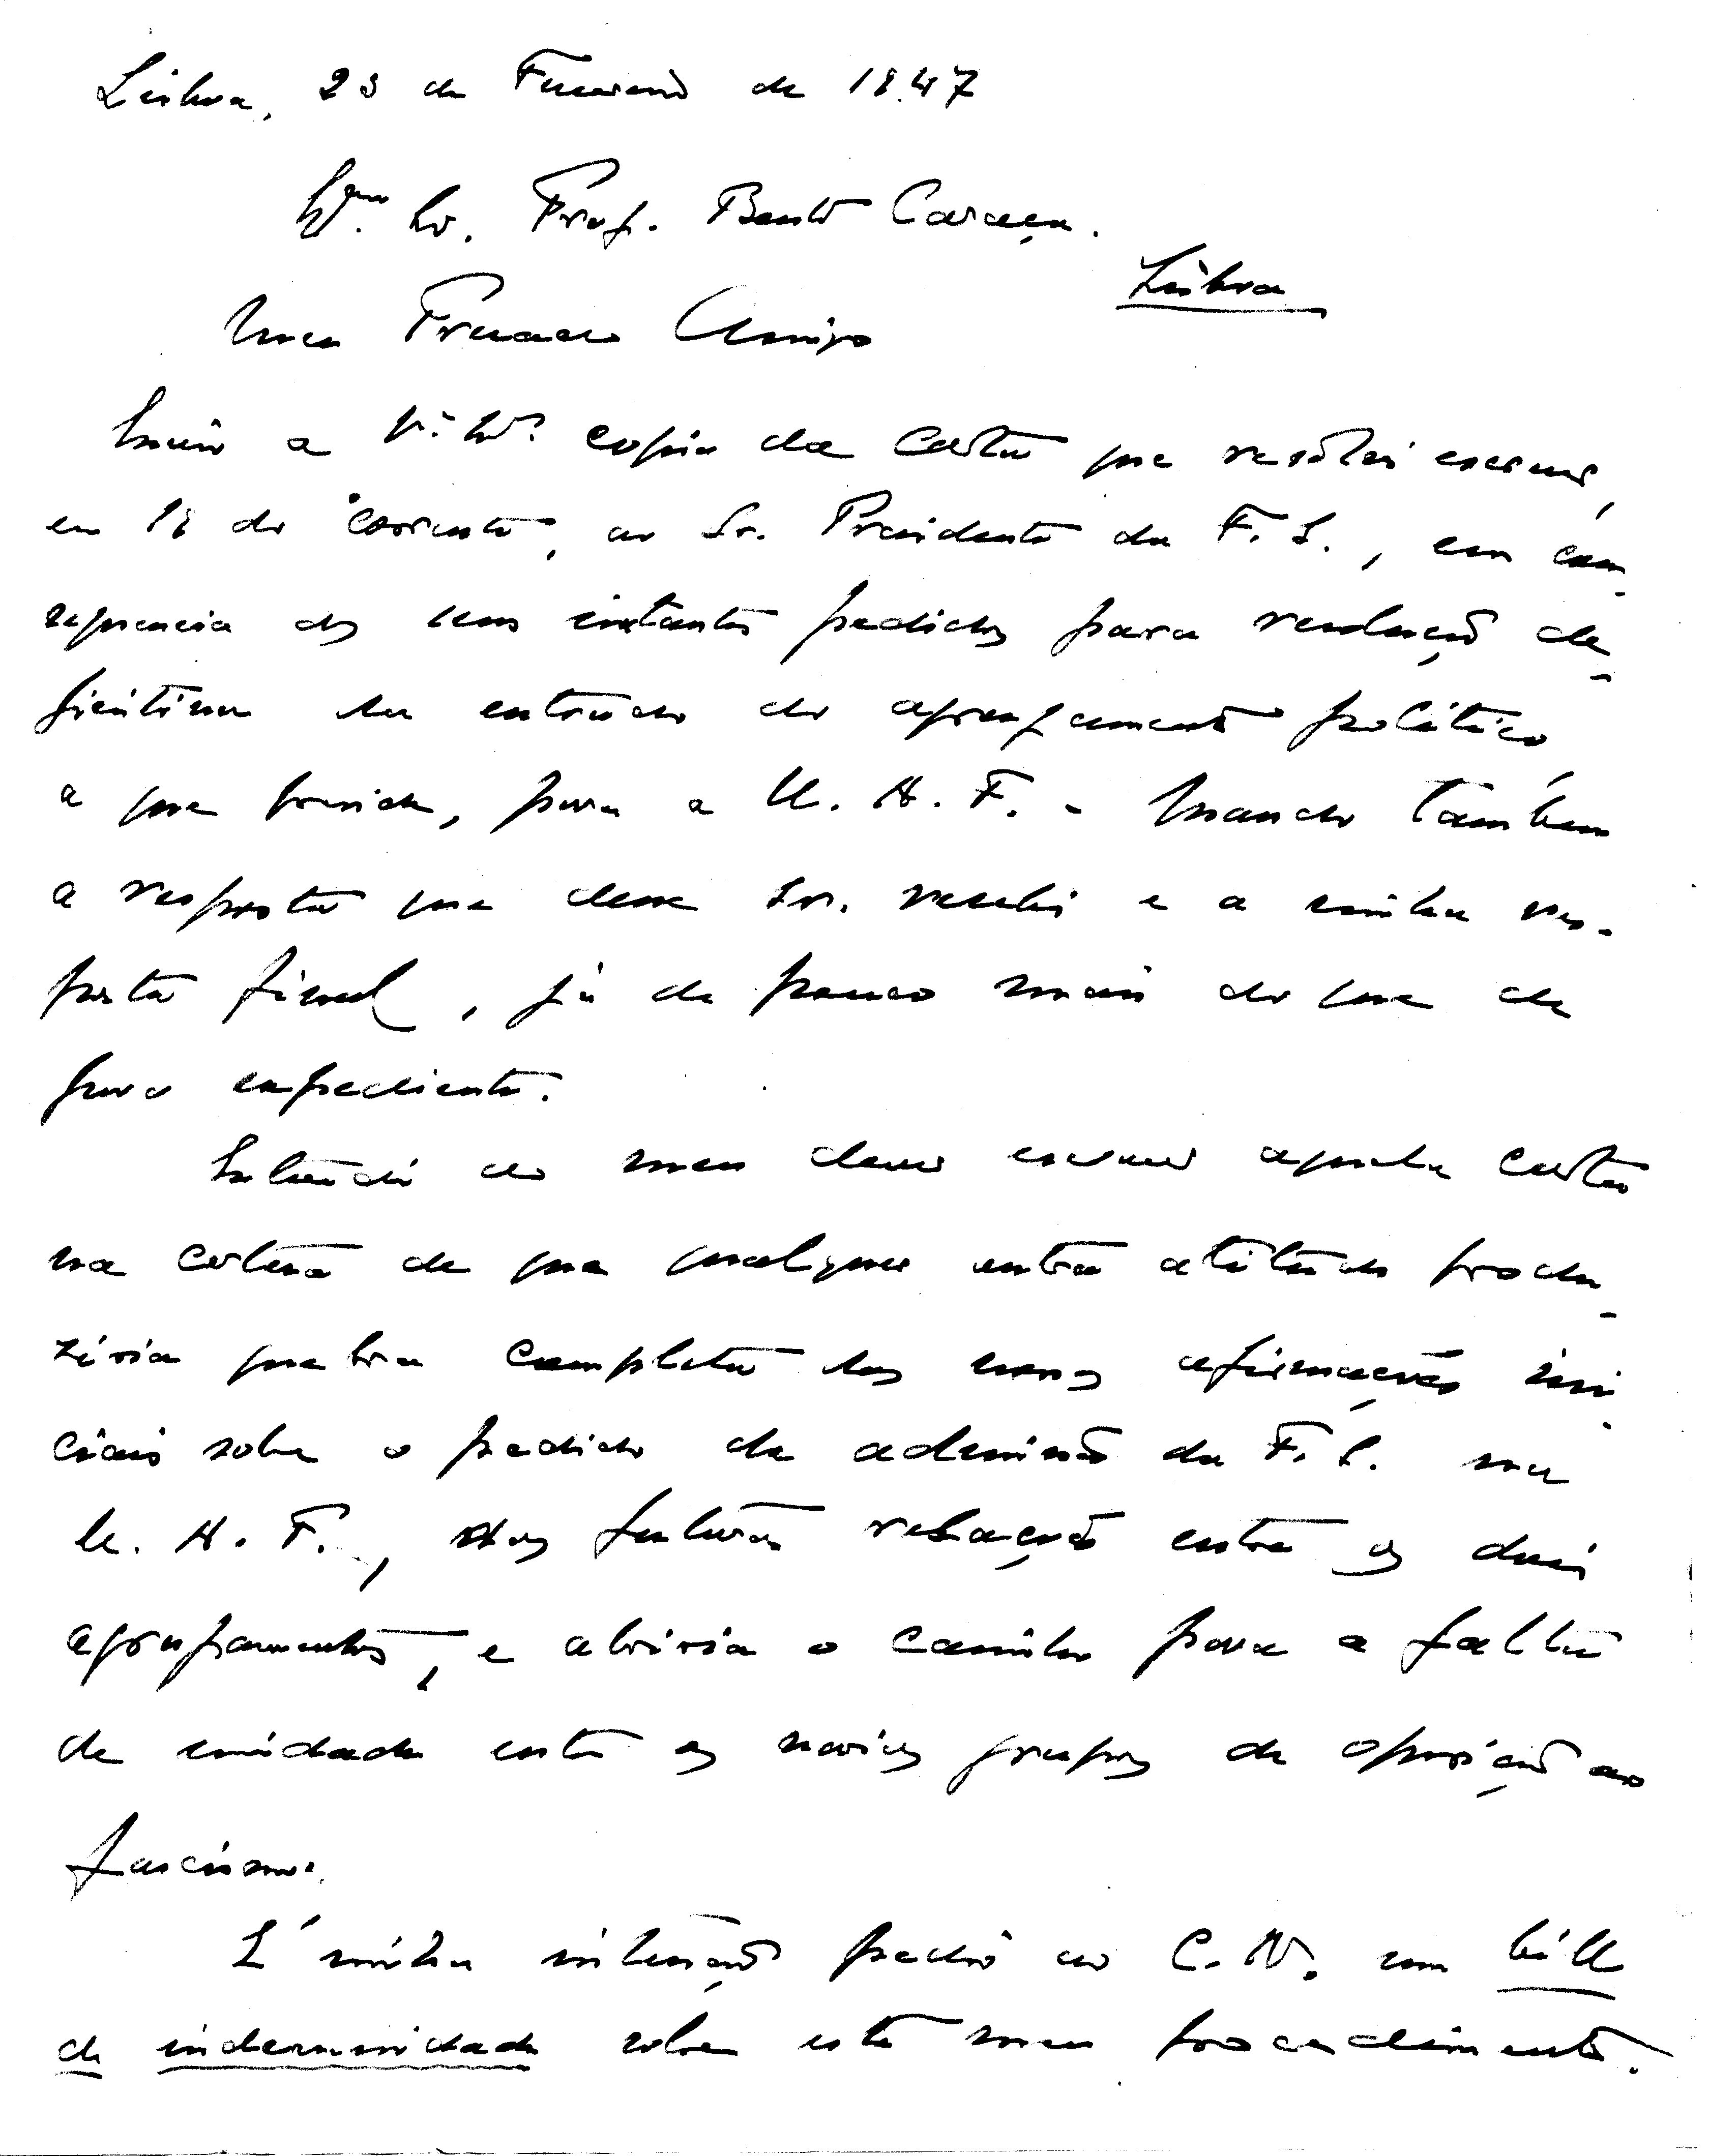 Lisboa, 23 de Fevereiro de 1947
Exmo. Sr. Prof. Bento Caraça.
Lisboa
Meu Prezado Amigo
Envio a V. Exª. copia da carta que resolvi escrever,
em 18 do corrente, ao Sr. Presidente da F. S., em con-
sequencia dos seus instantes pedidos para resolução de-
finitiva da entrada do agrupamento politico,
a que preside, para a U. A. F. - Mando também
a resposta que desse Sr. recebi e a minha res-
posta final, já de pouco mais do que de
puro expediente.
Entendi do meu dever escrever aquela carta
na certeza de que qualquer outra atitude produ-
ziria quebra completa das nossas afirmações ini-
ciais sobre o pedido de admissão da F. S. na
U. A. F., nas futuras relações entre os dois
agrupamentos, e abriria o caminho para a falta
de unidade entre os varios grupos de oposição ao
fascismo.
É minha intenção pedir ao C. N. um bill
de indemnidade sobre este meu procedimento.